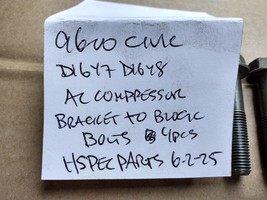 9600 CIVIC
D16Y7 D16Y8
AC COMPRESSOR
BRACKET TO BLOCK
BOLTS 4PCS
HSPEC PARTS 6-2-25